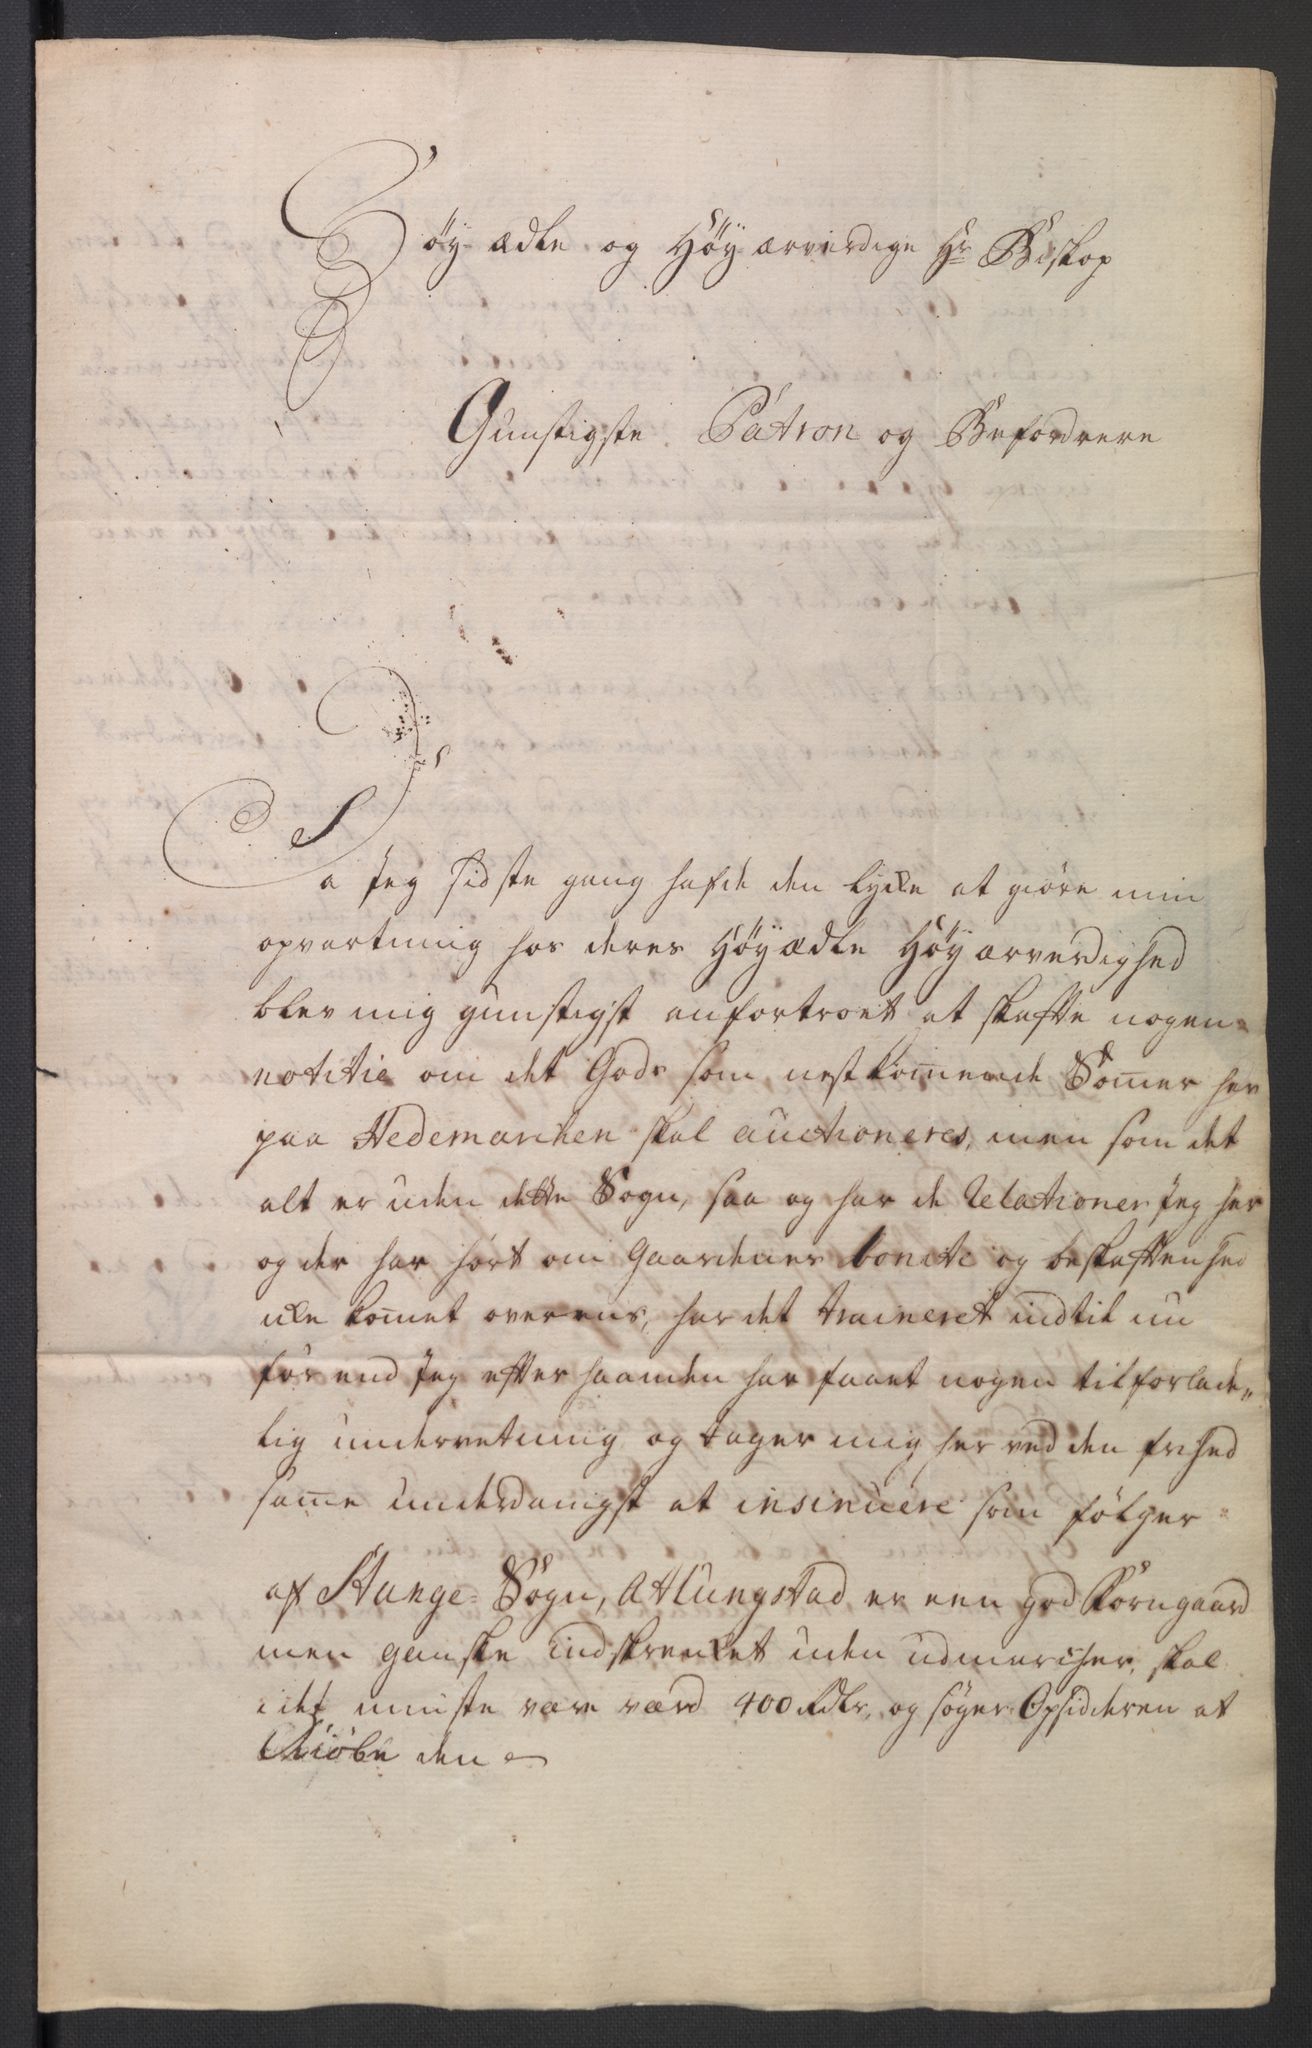 Høy ædle og Høyærverdige Hr Biskop
Gunstigste Patron og Befordrere
Da Jeg sidste gang hafde den lycke at giøre min
opvartning hos deres Høyædle Høyærverdighed
blev mig gunstigst anfortroet at skaffe nogen
notitie om det Gods som nestkom̄ende Som̄er her
paa Hedemarchen skal auctioneres, men som det
alt er uden dette Sogn, saa og har de Relationer Jeg her
og der har hørt om Gaardenes bonite og beskaffenhed
icke kom̄et overens, har det traineret indtil nu
før end Jeg efter haanden har faaet nogen tilforlade„
lig underretning og tager mig her ved den frihed
sam̄e underdanigst at insinuere som følger
af Stange Sogn, Atlungstad er een god Korngaard
men ganske indskrencket uden udmarcher, skal
i det minste være værd 400 Rdlr, og søger Opsidderen at
Kiøbe den